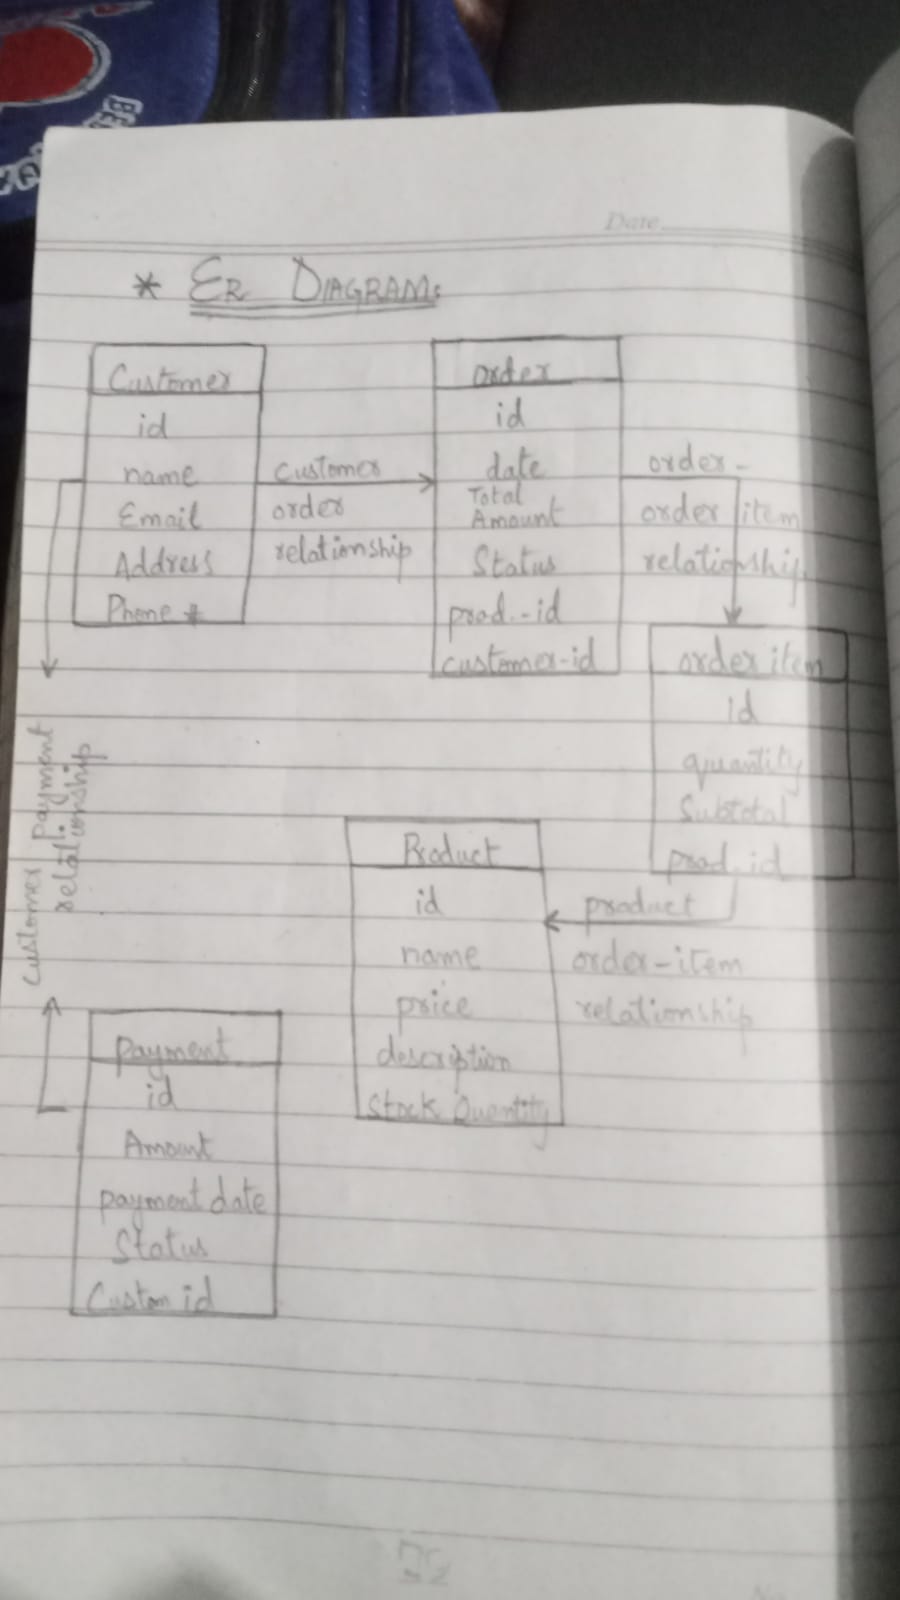 Date
* ER DIAGRAM:
Customer
id
name
Email
Address
Phone #
customer
order
relationship
order
id
date
Total
Amount
Status
prod.-id
customer-id
order-
order item
relationship
order item
id
quantity
Subtotal
prod. id
customer payment
relationship
Product
id
name
price
description
Stock Quantity
product
order-item
relationship
payment
id
Amount
payment date
Status
Custom id